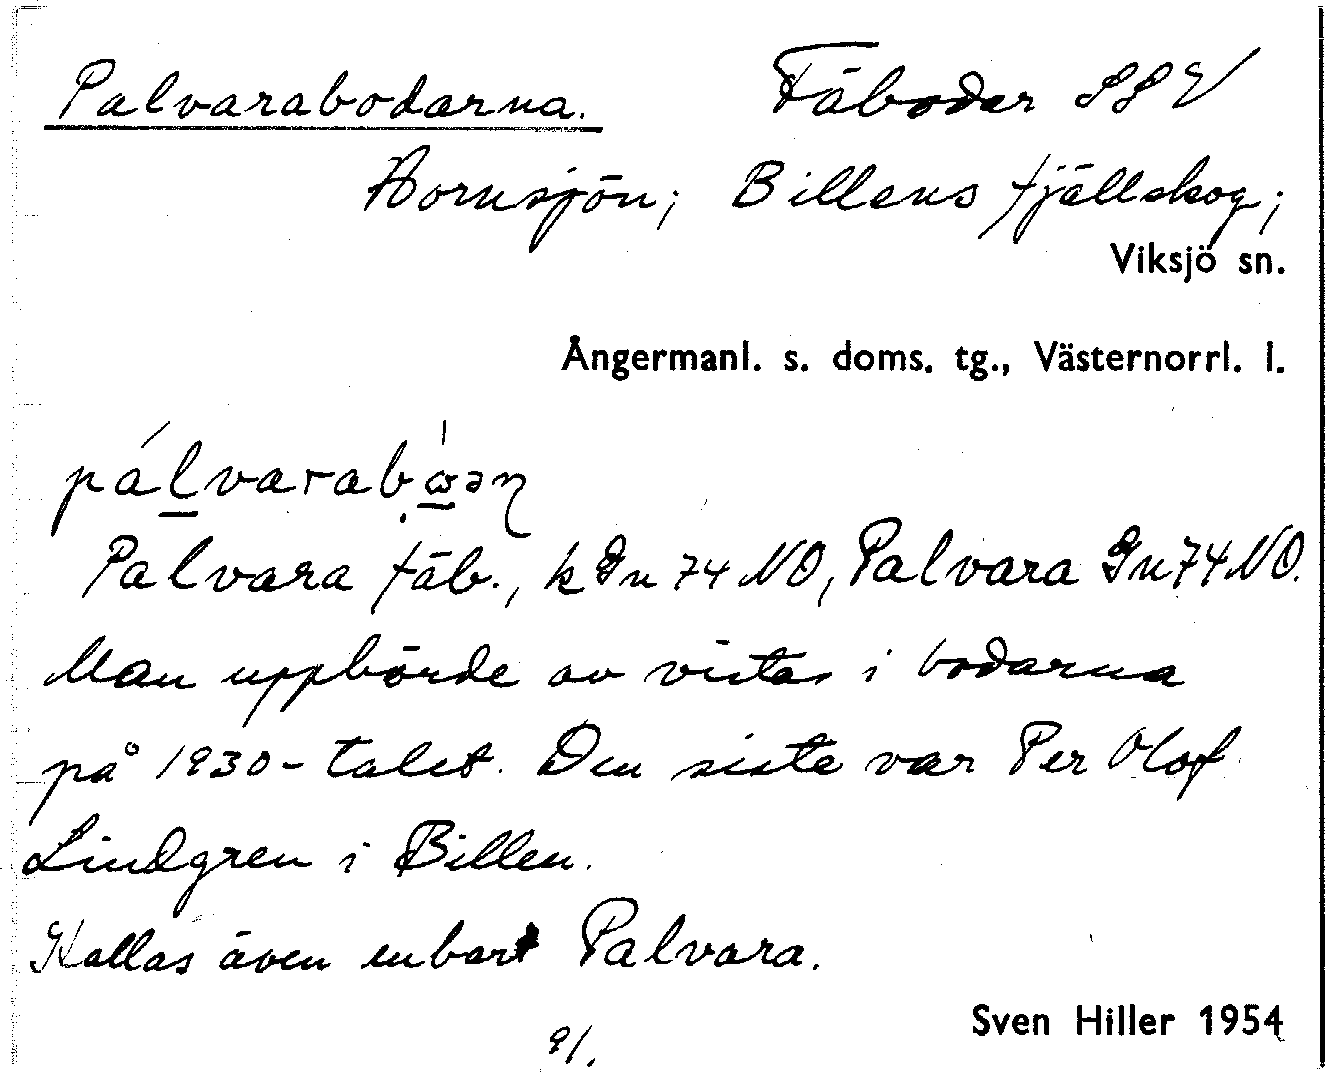 Palvarabodarna. Fäbodar SSV
Hornsjön; Billens fjällskog;
Viksjö sn.
Ångermanl. s. doms. tg., Västernorrl. l.
Palvara fäb., k Gn 74 NO, Palvara Gn 74 NO.
Man uppbörde av vistas i bodarna
på 1930-talet. Den siste var Per Olof
Lindgren i Billen.
Kallas även enbart Palvara.
Sven Hiller 1954